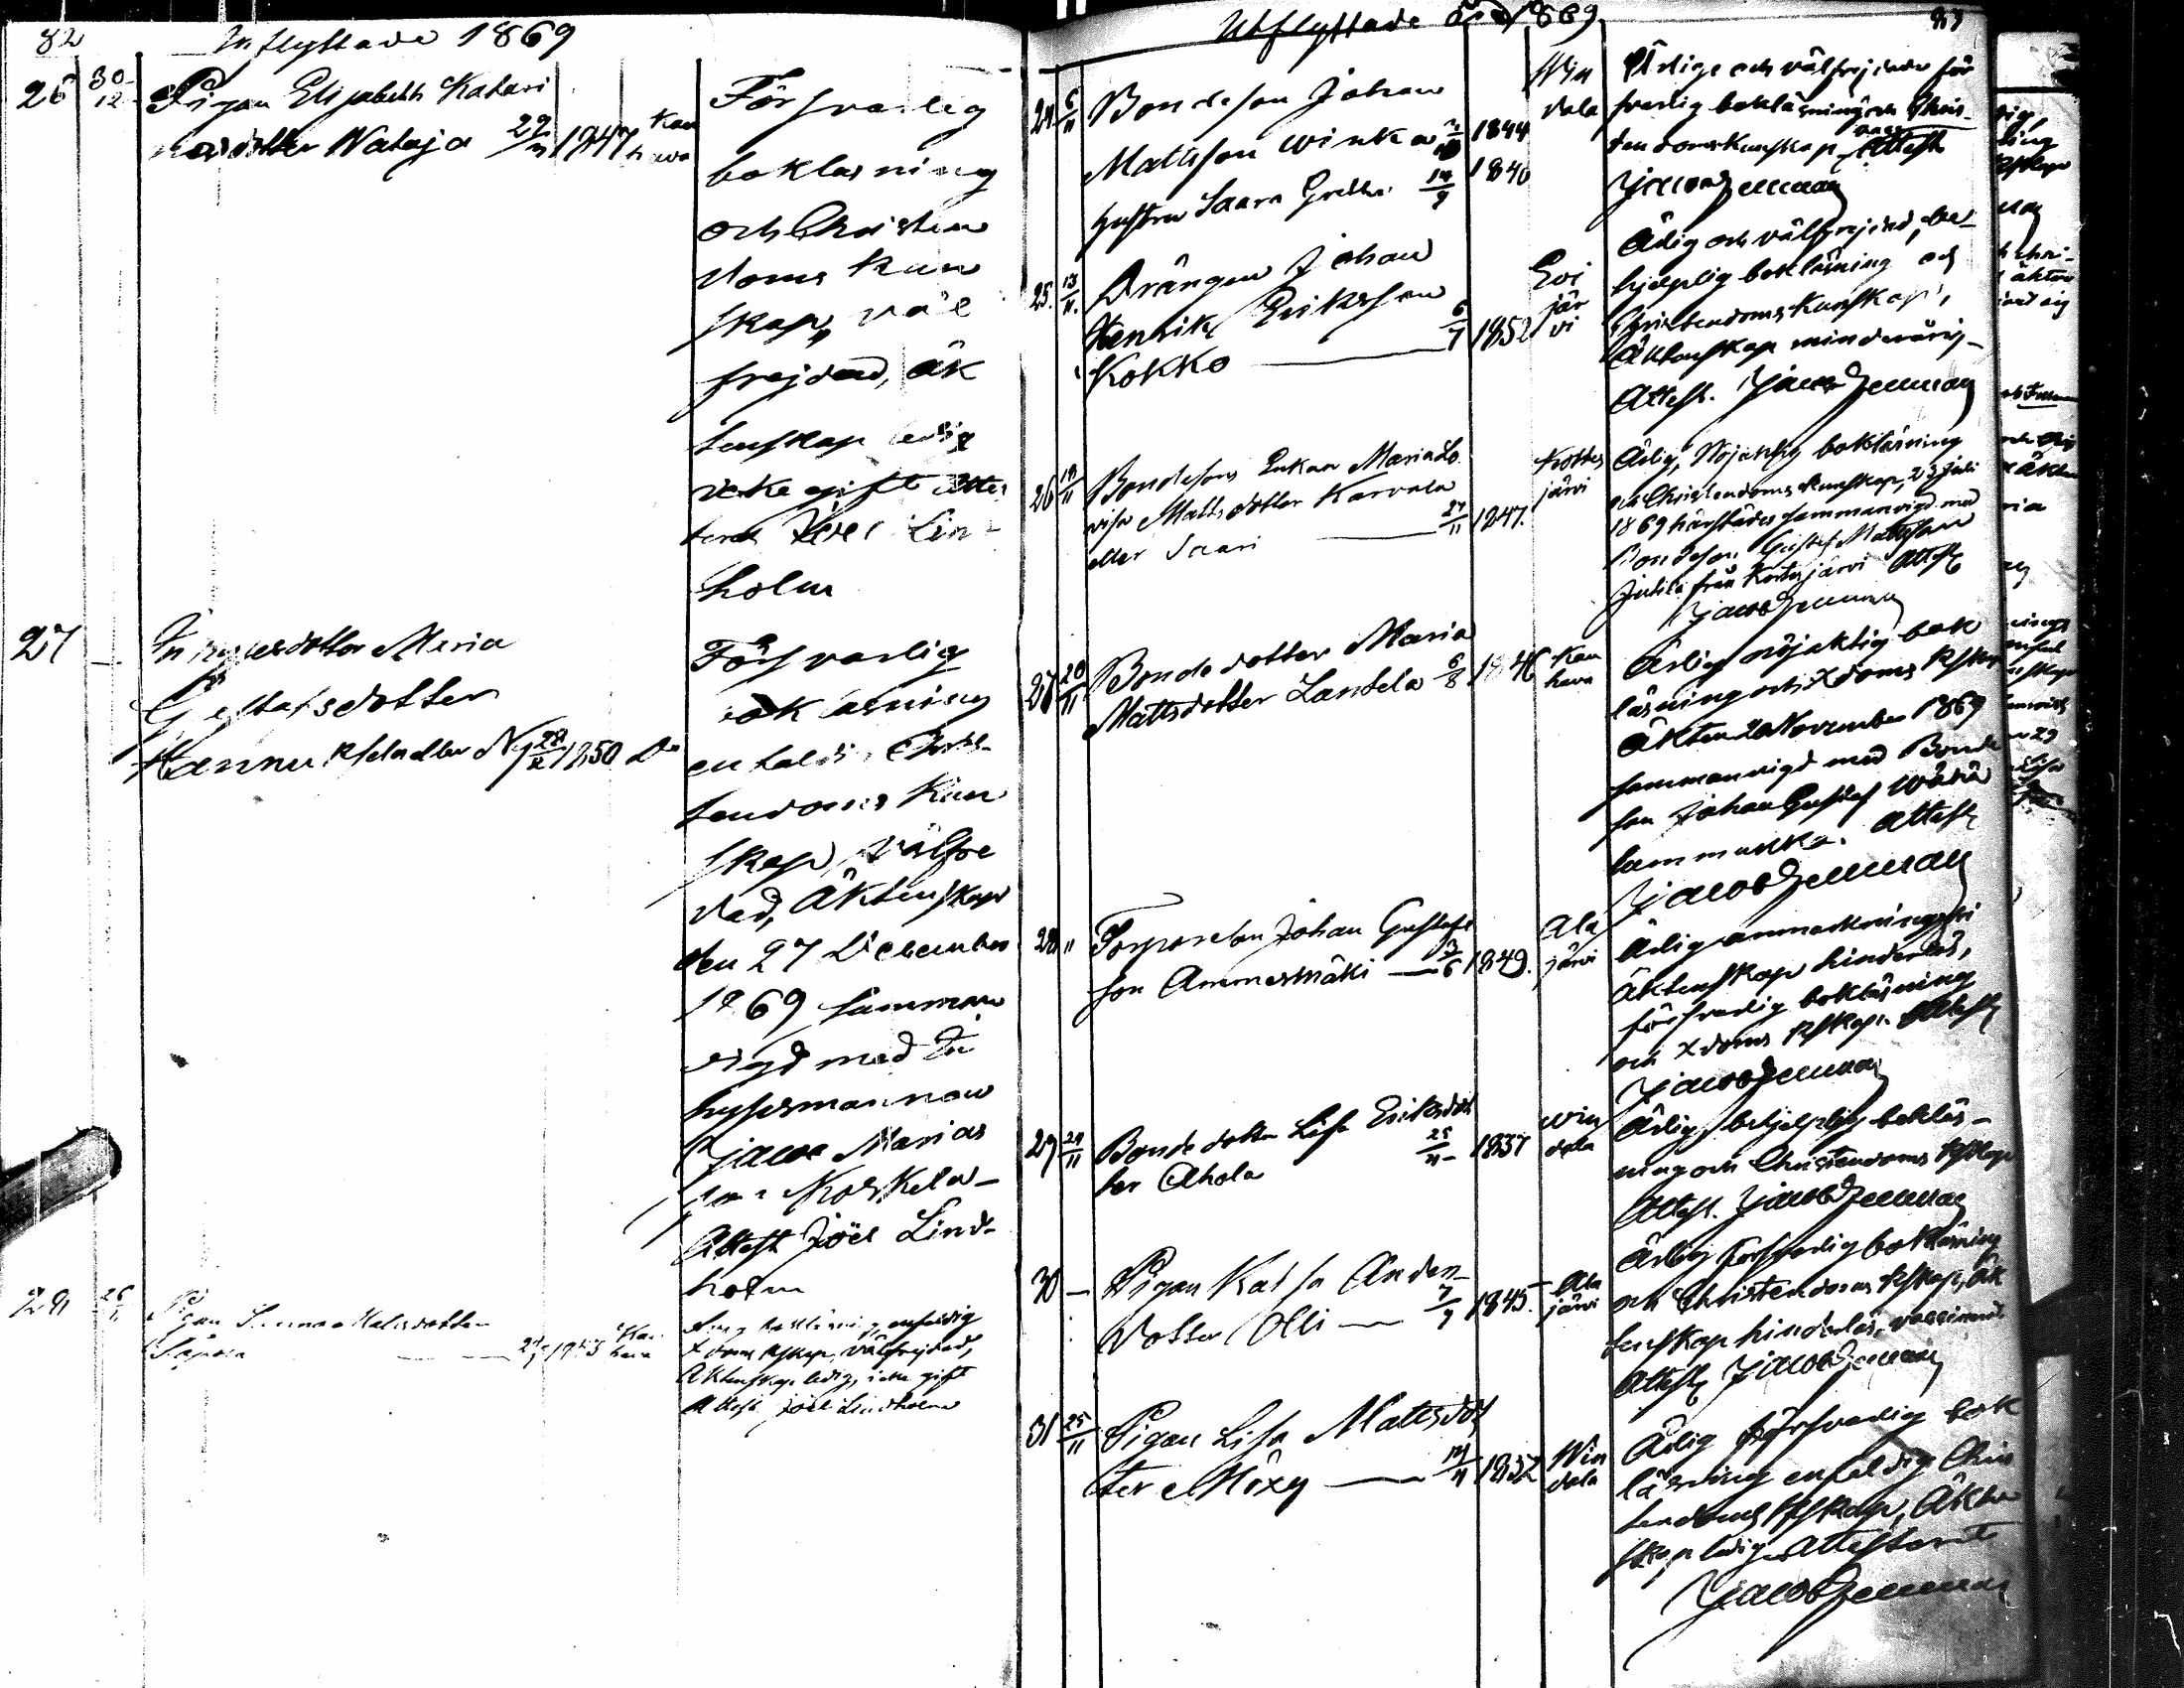 82
Inflyttade 1869
26 30/12 Pigan Elisabeth Katari
nasdotter Nataja 29/11 1847 Kau
hava
Försvarlig
bokläsning
och Christen
doms kun
skap, väl
frejdad, äk
tenskap ledig
icke gift Attes
terar Joel Lin-
holm
27 — Inhysesdotter Maria
Gustafsdotter
Hannuksela 1850 Do
Försvarlig
bokläsning
enfaldig Chris-
tendoms kun
skap, välfre
dad, Äktenskap
den 27 December
1869 samman
vigd med In
hysesmannen
Jacob Marias
son Koskela-
Attest Joel Lind-
holm
28 26/11 Pigan Sanna Matsdotter
Kau
hava
bokläsning, enfaldig
Xdoms kskap, välfrejdad,
Äktenskap ledig, icke gift
Attest Joel Lindholm
Utflyttade År 1869
83
24 6/11 Bondeson Johan
Mattsson Winka 1844
hustru Saara Greta 14/9 1840
Win
dala
Ärlige och välfrejdade för
svarlig bokläsning och Chris-
tendomskunskap, Attest
25. 13/11. Drängen Johan
Henrik Eriksson
Kokko — 6/7 1852
Evi
jär
vi
Ärlig och välfrejdad, be-
hjelplig bokläsning och
Christendomskunskap,
Äktenskap minderårig-
Attest.
26 19/11 Bondesons Enkan Maria Lo
visa Mattsdotter Karvala
eller Saari — 27/11 1847.
Kortes
järvi
Ärlig, Nöjaktig bokläsning
och Christendoms kunskap, 23 Juli
1869 härstädes sammanvigd med
Bondeson Gustaf Mattsson
Jutila från Kortesjärvi Attest
27 20/11 Bondedotter Maria
Mattsdotter Lantela 6/8 1846
Kau
hava
Ärlig nöjaktig bok
läsning och Xdoms kskap
Äkten 20 November 1869
sammanvigd med Bonde
son Johan Gustaf
lammukka. Attest
28 " Torpareson Johan Gustafs
son Ammesmäki — 3/6 1849.
Ala
järvi
Ärlig anmärkningsfri
Äktenskap hinderlös,
försvarlig bokläsning
och Xdoms kskap. Attest
29 24/11 Bondedotter Lisa Eriksdot
ter Ahola 25/11 1837
Win
dala
Ärlig, behjelplig bokläs-
ning och Christendoms kskap
Attest.
30 — Pigan Kaisa Anders-
dotter Olli — 7/9 1845.
Ala
järvi
Ärlig försvarlig bokläsning
och Christendoms kskap, äk
tenskap hinderlös, vaccinerad
Attest
31 25/11 Pigan Lisa Mattsdot
ter Möxy — 1832
Win
dala
Ärlig försvarlig bok
läsning enfaldig Chris
tendoms kskap, Äkten
skap ledig. Attesterat